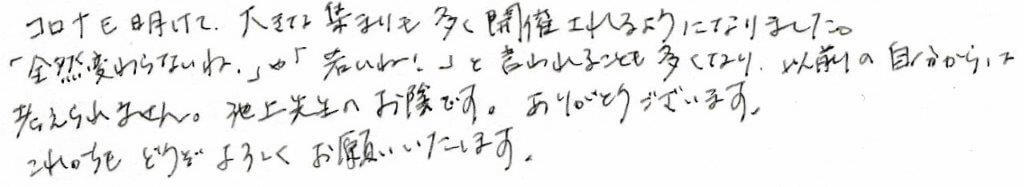 コロナも明けて、大きな集まりも多く開催されるようになりました。
「全然変わらないね、」や「若いね!」と言われることも多くなり、以前の自分からは
考えられません。池上先生のお陰です。ありがとうございます。
これからも どうぞ よろしく お願いいたします。